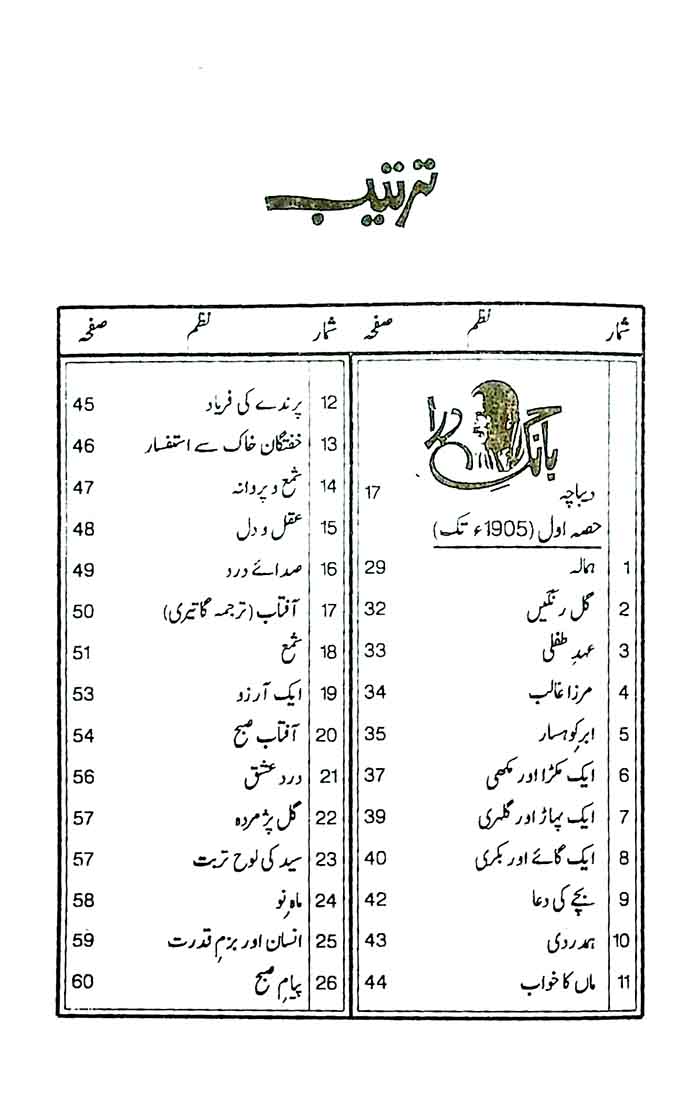 ترتیب
شمار نظم صفحہ
بانگ درا
دیباچہ 17
حصہ اول (1905ء تک)
1 ہمالہ 29
2 گل رنگیں 32
3 عہدِ طفلی 33
4 مرزا غالب 34
5 ابرِ کوہسار 35
6 ایک مکڑا اور مکھی 37
7 ایک پہاڑ اور گلہری 39
8 ایک گائے اور بکری 40
9 بچے کی دعا 42
10 ہمدردی 43
11 ماں کا خواب 44
شمار نظم صفحہ
12 پرندے کی فریاد 45
13 خفتگان خاک سے استفسار 46
14 شمع و پروانہ 47
15 عقل و دل 48
16 صدائے درد 49
17 آفتاب (ترجمہ گاتیری) 50
18 شمع 51
19 ایک آرزو 53
20 آفتاب صبح 54
21 درد عشق 56
22 گل پژمردہ 57
23 سید کی لوح تربت 57
24 ماہِ نو 58
25 انسان اور بزمِ قدرت 59
26 پیامِ صبح 60